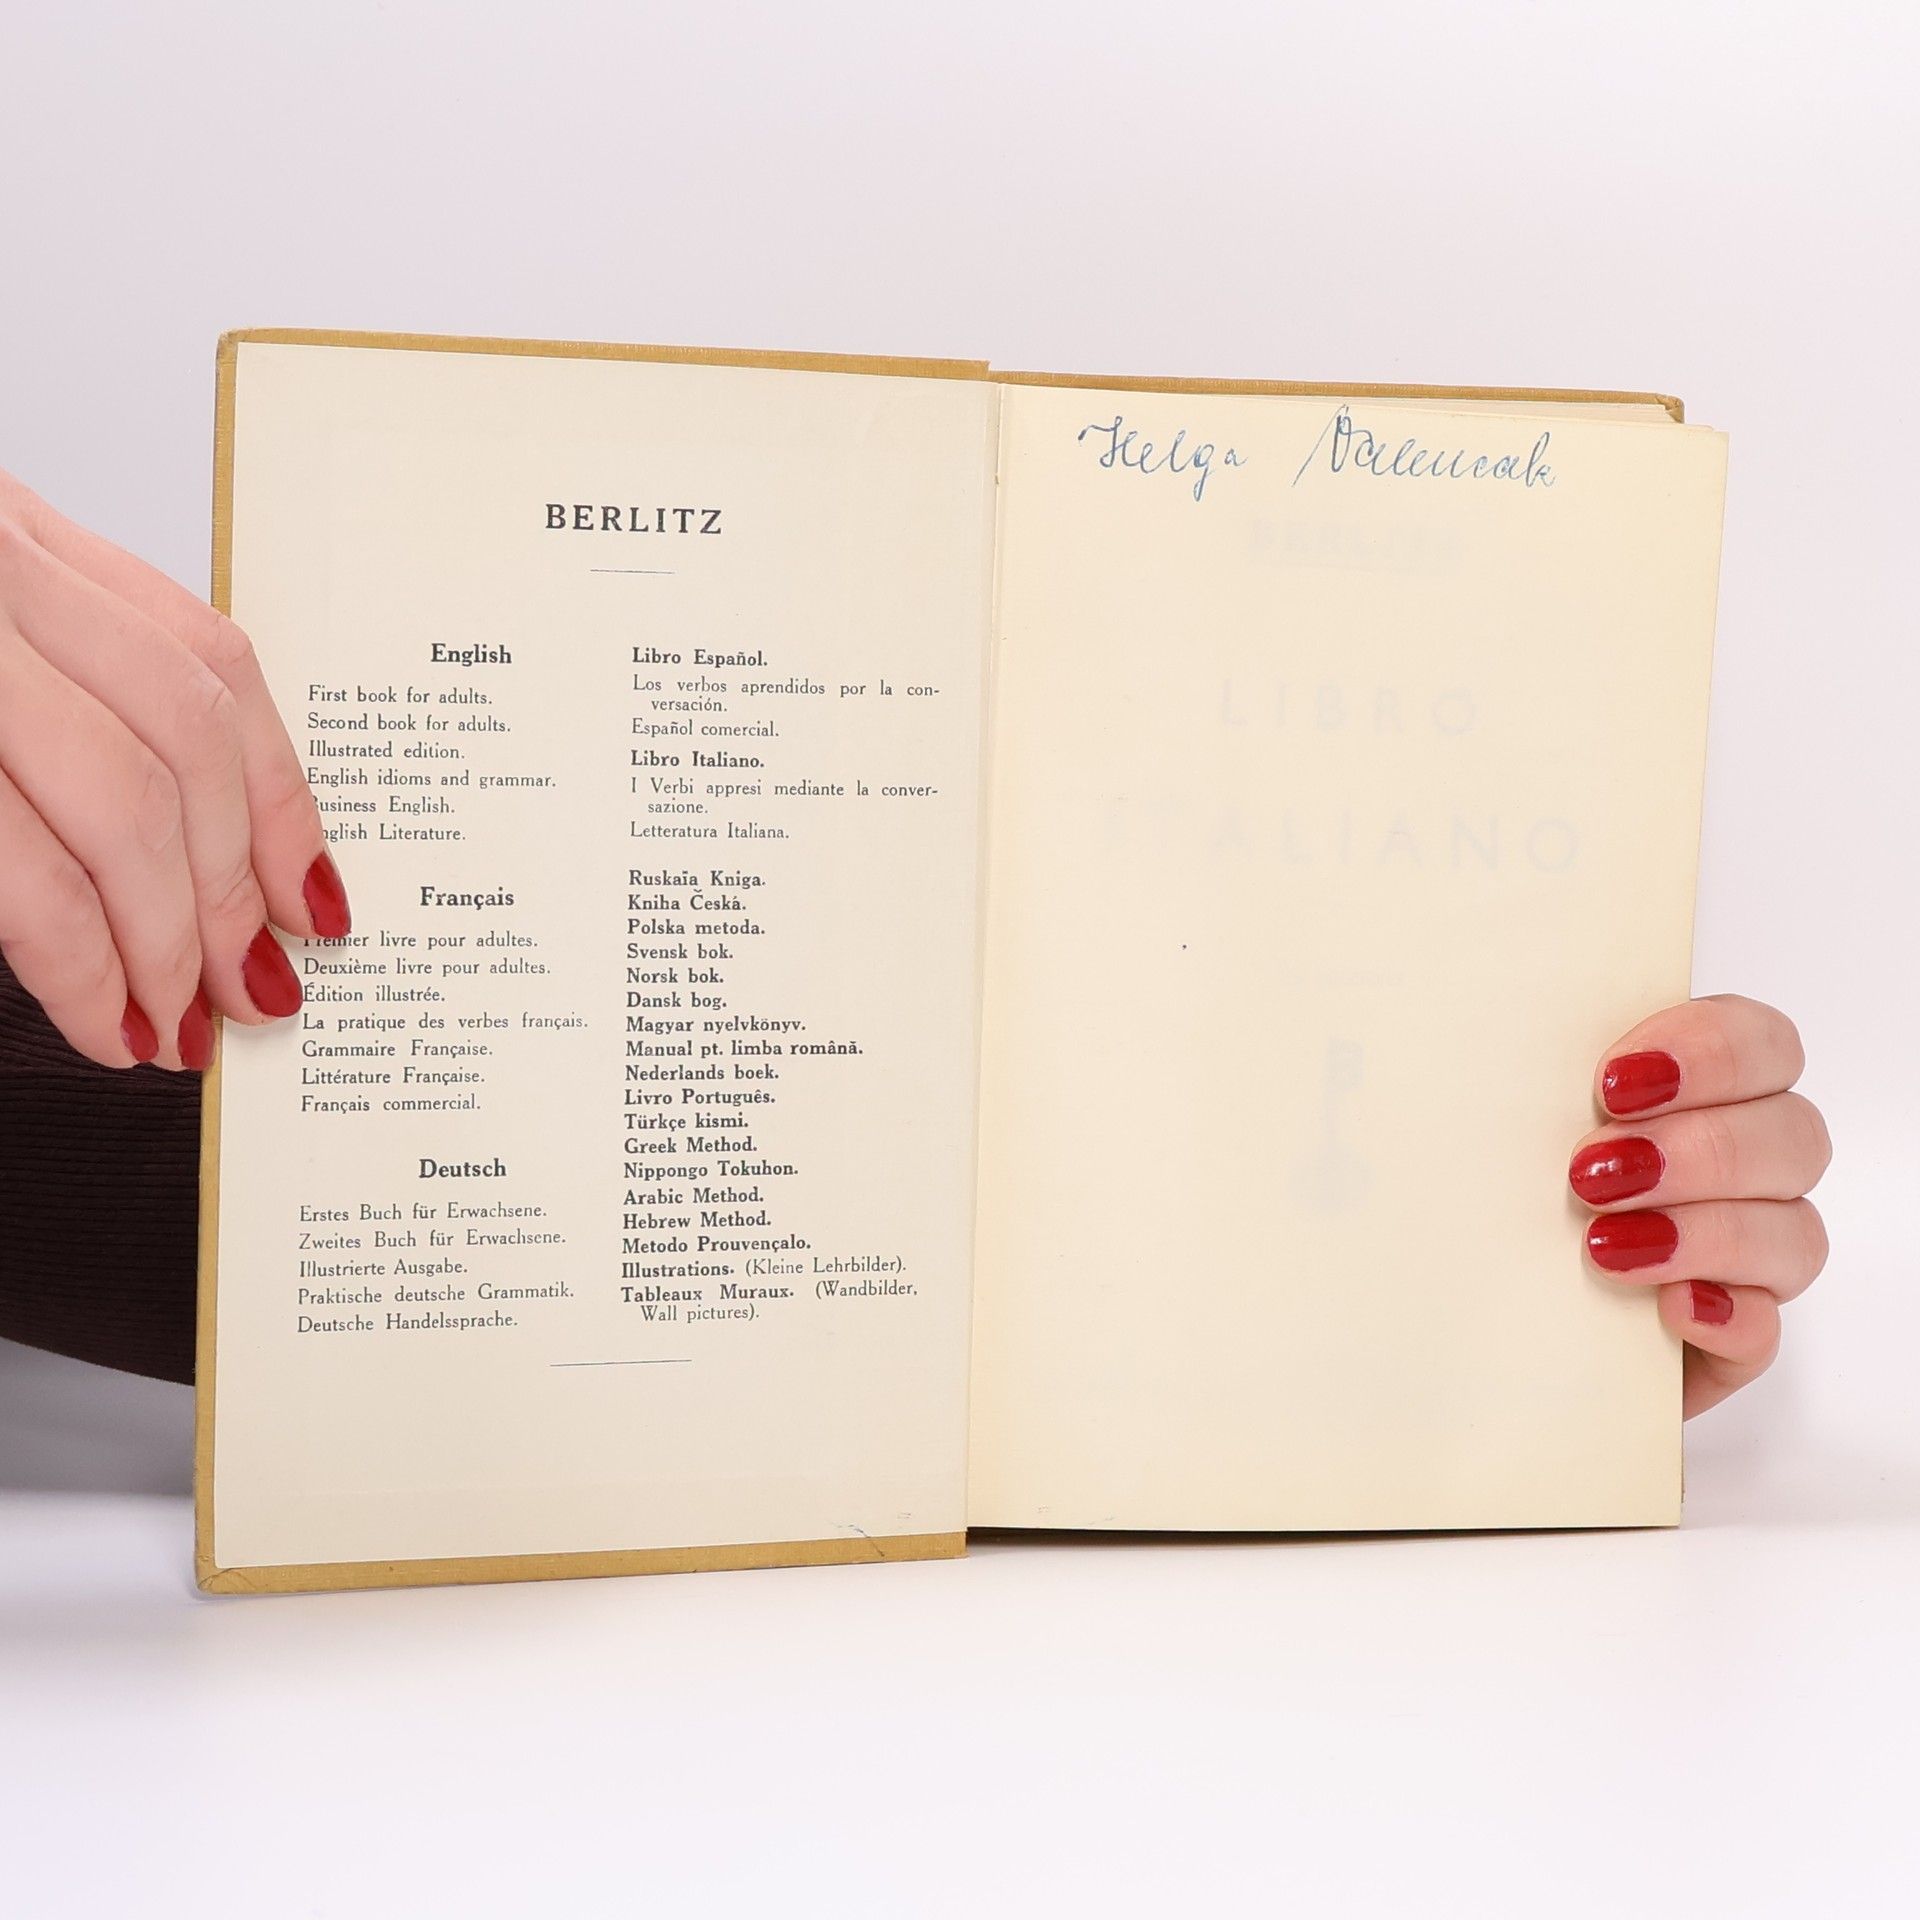 BERLITZ
English
First book for adults.
Second book for adults.
Illustrated edition.
English idioms and grammar.
Business English.
English Literature.
Français
Premier livre pour adultes.
Deuxième livre pour adultes.
Édition illustrée.
La pratique des verbes français.
Grammaire Française.
Littérature Française.
Français commercial.
Deutsch
Erstes Buch für Erwachsene.
Zweites Buch für Erwachsene.
Illustrierte Ausgabe.
Praktische deutsche Grammatik.
Deutsche Handelssprache.
Libro Español.
Los verbos aprendidos por la con-
versación.
Español comercial.
Libro Italiano.
I Verbi appresi mediante la conver-
sazione.
Letteratura Italiana.
Ruskaïa Kniga.
Kniha Česká.
Polska metoda.
Svensk bok.
Norsk bok.
Dansk bog.
Magyar nyelvkönyv.
Manual pt. limba română.
Nederlands boek.
Livro Português.
Türkçe kismi.
Greek Method.
Nippongo Tokuhon.
Arabic Method.
Hebrew Method.
Metodo Prouvençalo.
Illustrations. (Kleine Lehrbilder).
Tableaux Muraux. (Wandbilder,
Wall pictures).
Helga Valencak
BERLITZ
LIBRO
ALIANO